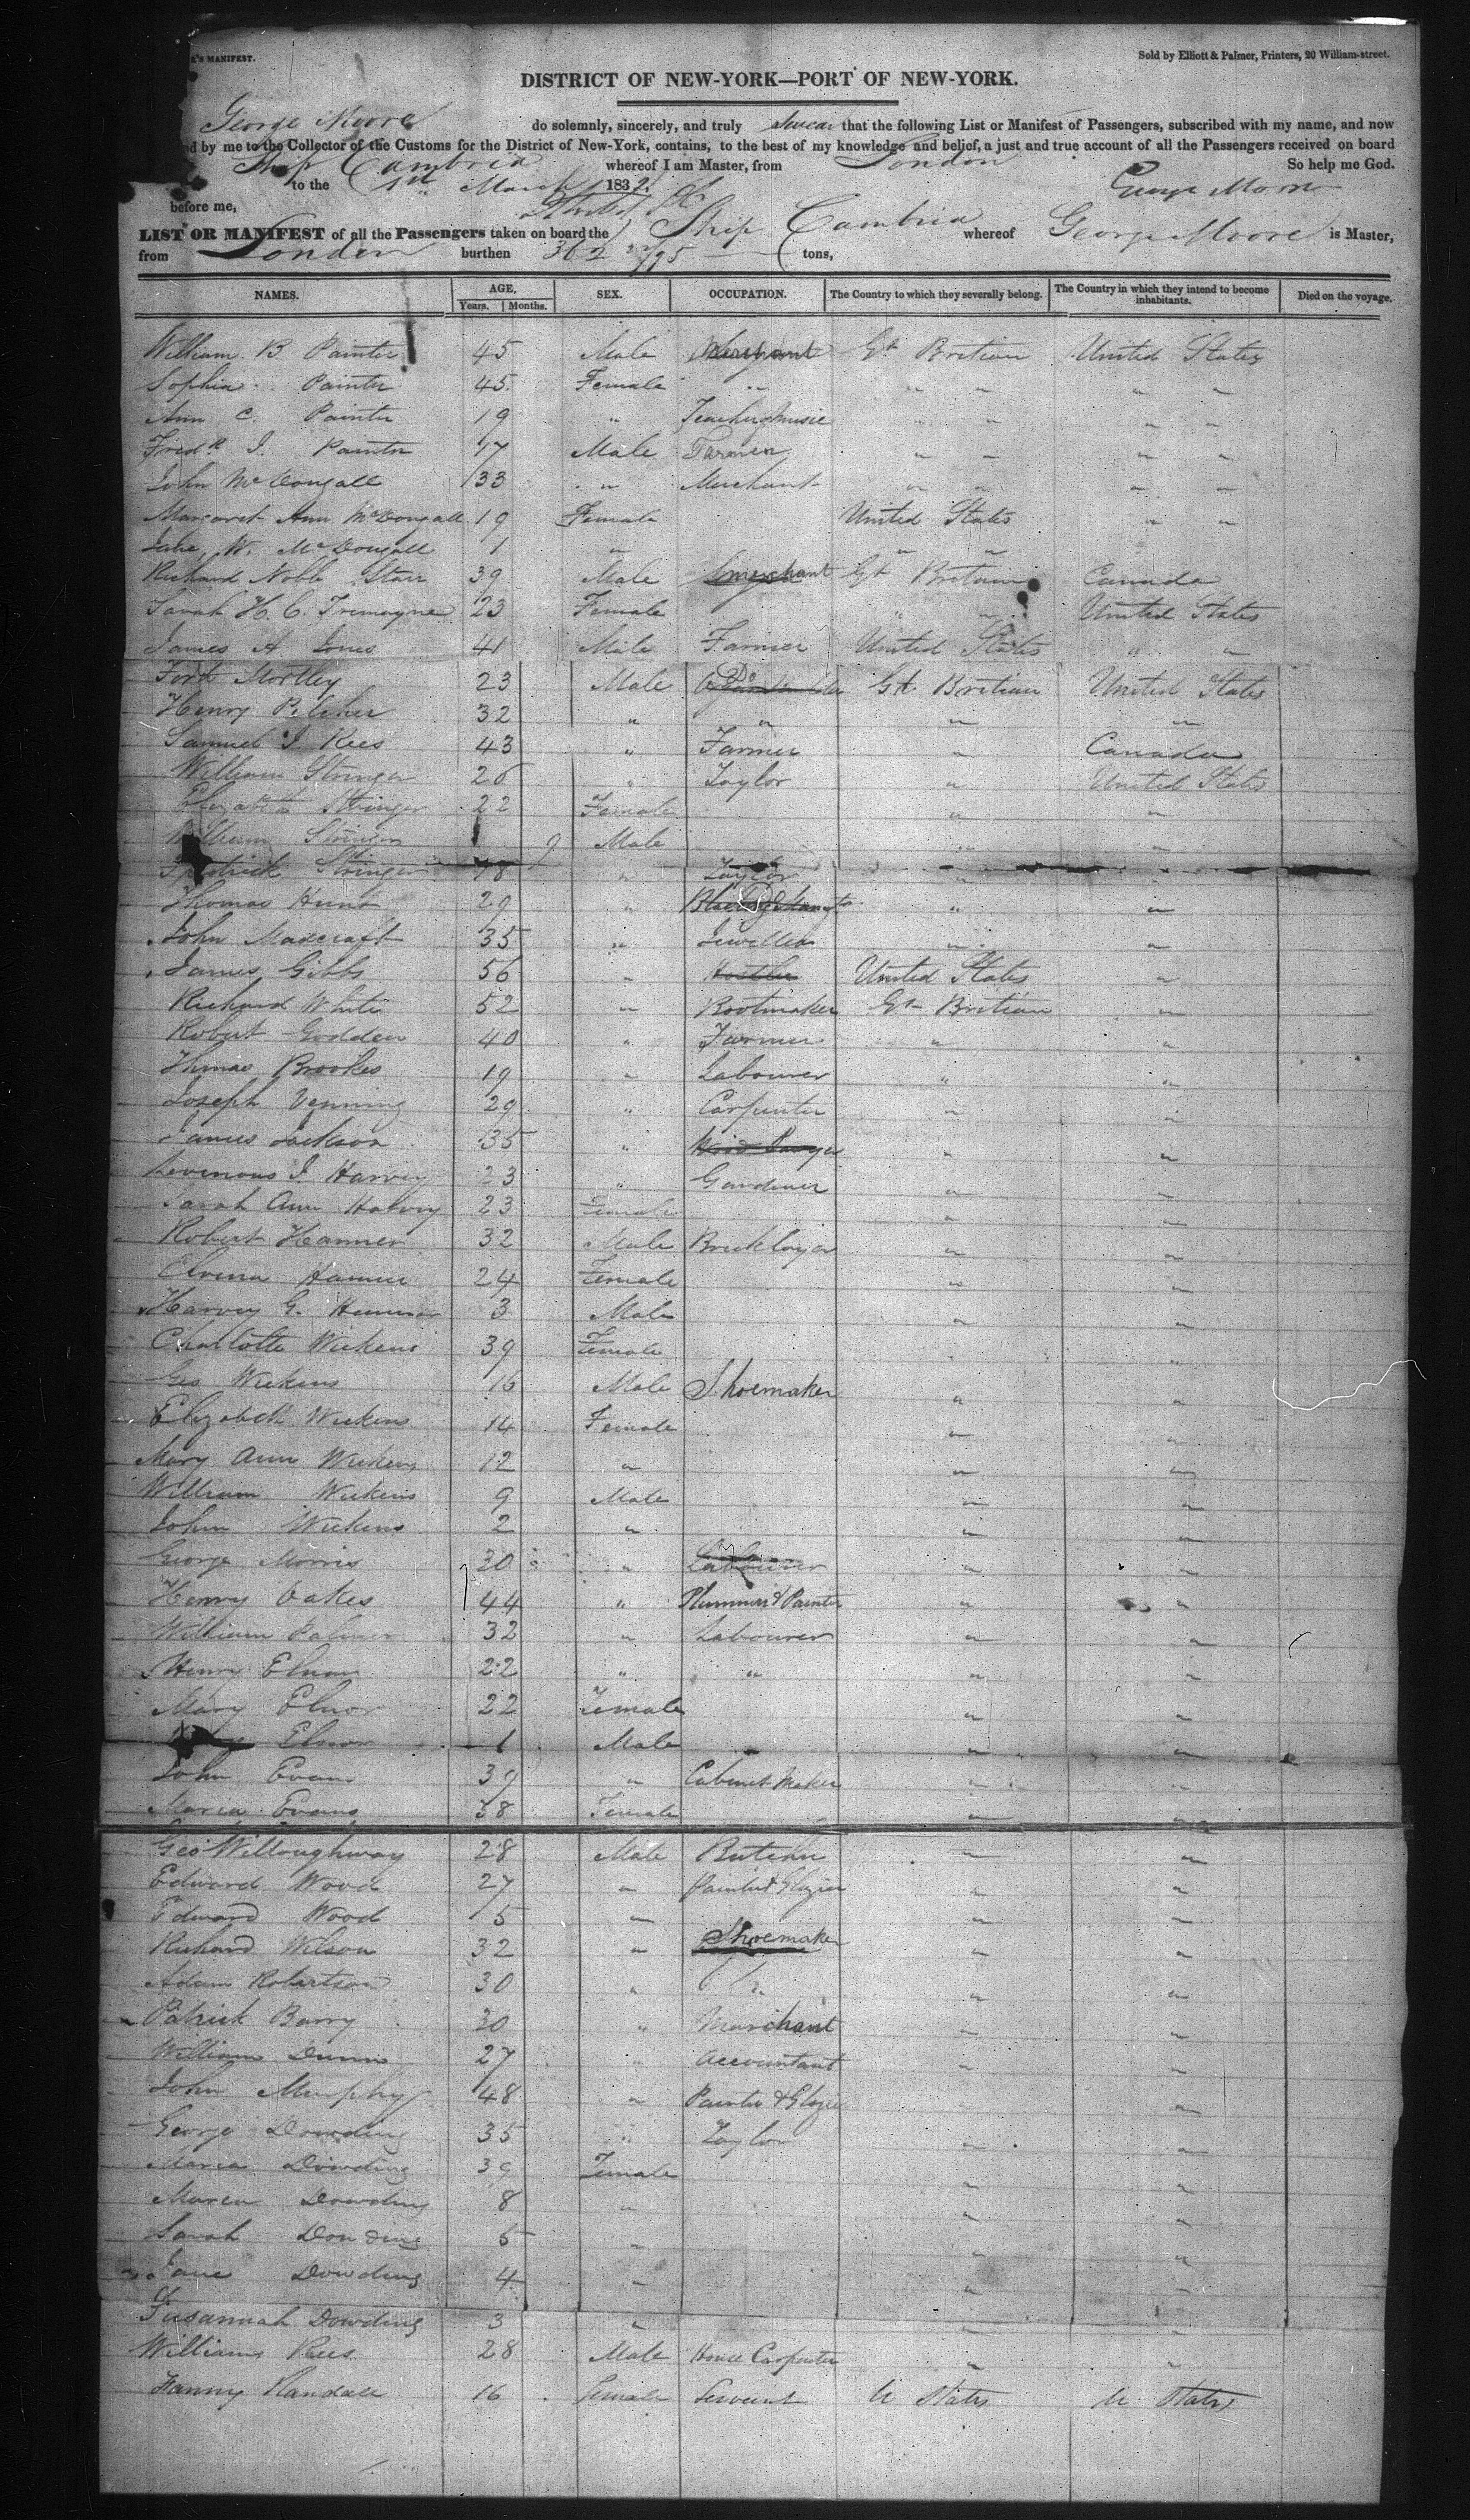 R'S MANIFEST.
Sold by Elliott & Palmer, Printers, 20 William-street.
DISTRICT OF NEW-YORK—PORT OF NEW-YORK.
George Moore do solemnly, sincerely, and truly swear that the following List or Manifest of Passengers, subscribed with my name, and now
d by me to the Collector of the Customs for the District of New-York, contains, to the best of my knowledge and belief, a just and true account of all the Passengers received on board
Ship Cambria whereof I am Master, from London So help me God.
to the 1st March 1832. George Moore
before me,
LIST OR MANIFEST of all the Passengers taken on board the Ship Cambria whereof George Moore is Master,
from London burthen 362 tons,
NAMES. AGE. SEX. OCCUPATION. The Country to which they severally belong. The Country in which they intend to become inhabitants. Died on the voyage.
Years. Months.
William B Painter 45 Male Merchant Gt Britian United States
Sophia Painter 45 Female " " " " "
Ann C. Painter 19 " Teacher of Music " " " "
Fredk J. Painter 17 Male Farmer " " " "
John McDougall 33 " Merchant " " " "
Margaret Ann McDougall 19 Female United States " "
Jane W. McDougall 1 " " "
Richard Noble Starr 39 Male merchant Gt Britain Canada
Sarah H. C. Tremayne 23 Female " " United States
James A Jones 41 Male Farmer United States " "
Ford Mortley 23 Male Do Gt Britian United States
Henry Pilcher 32 " " " "
Samuel J Rees 43 " Farmer " Canada
William Stringer 26 " Taylor " United States
Elizabeth Stringer 22 Female " "
William Stringer 9 Male " "
Stringer 18 " Taylor " "
Thomas Hunt 29 " " "
John Madcraft 35 " Jeweller " "
James Gibbs 56 " Hostler United States "
Richard White 52 " Bootmaker Gt Britian "
Robert Godden 40 " Farmer " "
Thmas Brookes 19 " Labourer " "
Joseph Venning 29 " Carpenter " "
James Jackson 35 " Wood Sawyer " "
Levenous J. Harvey 23 " Gardener " "
Sarah Ann Harvey 23 Female " "
Robert Hamner 32 Male Bricklayer " "
Elvina Hamner 24 Female " "
Harvey G. Hamner 3 Male " "
Charlotte Wickens 39 Female " "
Geo Wickens 16 Male Shoemaker " "
Elizabeth Wickens 14 Female " "
Mary Ann Wickens 12 " " "
William Wickens 9 Male " "
John Wickens 2 " " "
George Morris 30 " Labourer " "
Henry Oakes 44 " Plummer & Painter " "
William Palmer 32 " Labourer " "
Henry Elnor 22 " " " "
Mary Elnor 22 Female " "
Elnor 1 Male " "
John Evans 39 " Cabinet Maker " "
Maria Evans 38 Female " "
Geo Willoughway 28 Male Butcher " "
Edward Wood 27 " Painter & Glazier " "
Edward Wood 5 " " "
Richard Wilson 32 " Shoemaker " "
Adam Robertson 30 " " "
Patrick Barry 30 " Marchant " "
William Dunn 27 " Accountant " "
John Murphy 48 " Painter & Glazier "
George Dowding 35 " Taylor " "
Maria Dowding 39 Female " "
Maria Dowding 8 " " "
Sarah Dowding 5 " " "
Jane Dowding 4 " " "
Susannah Dowding 3 " " "
William Rees 28 Male House Carpenter " "
Fanny Randall 16 Female Servant U States U States